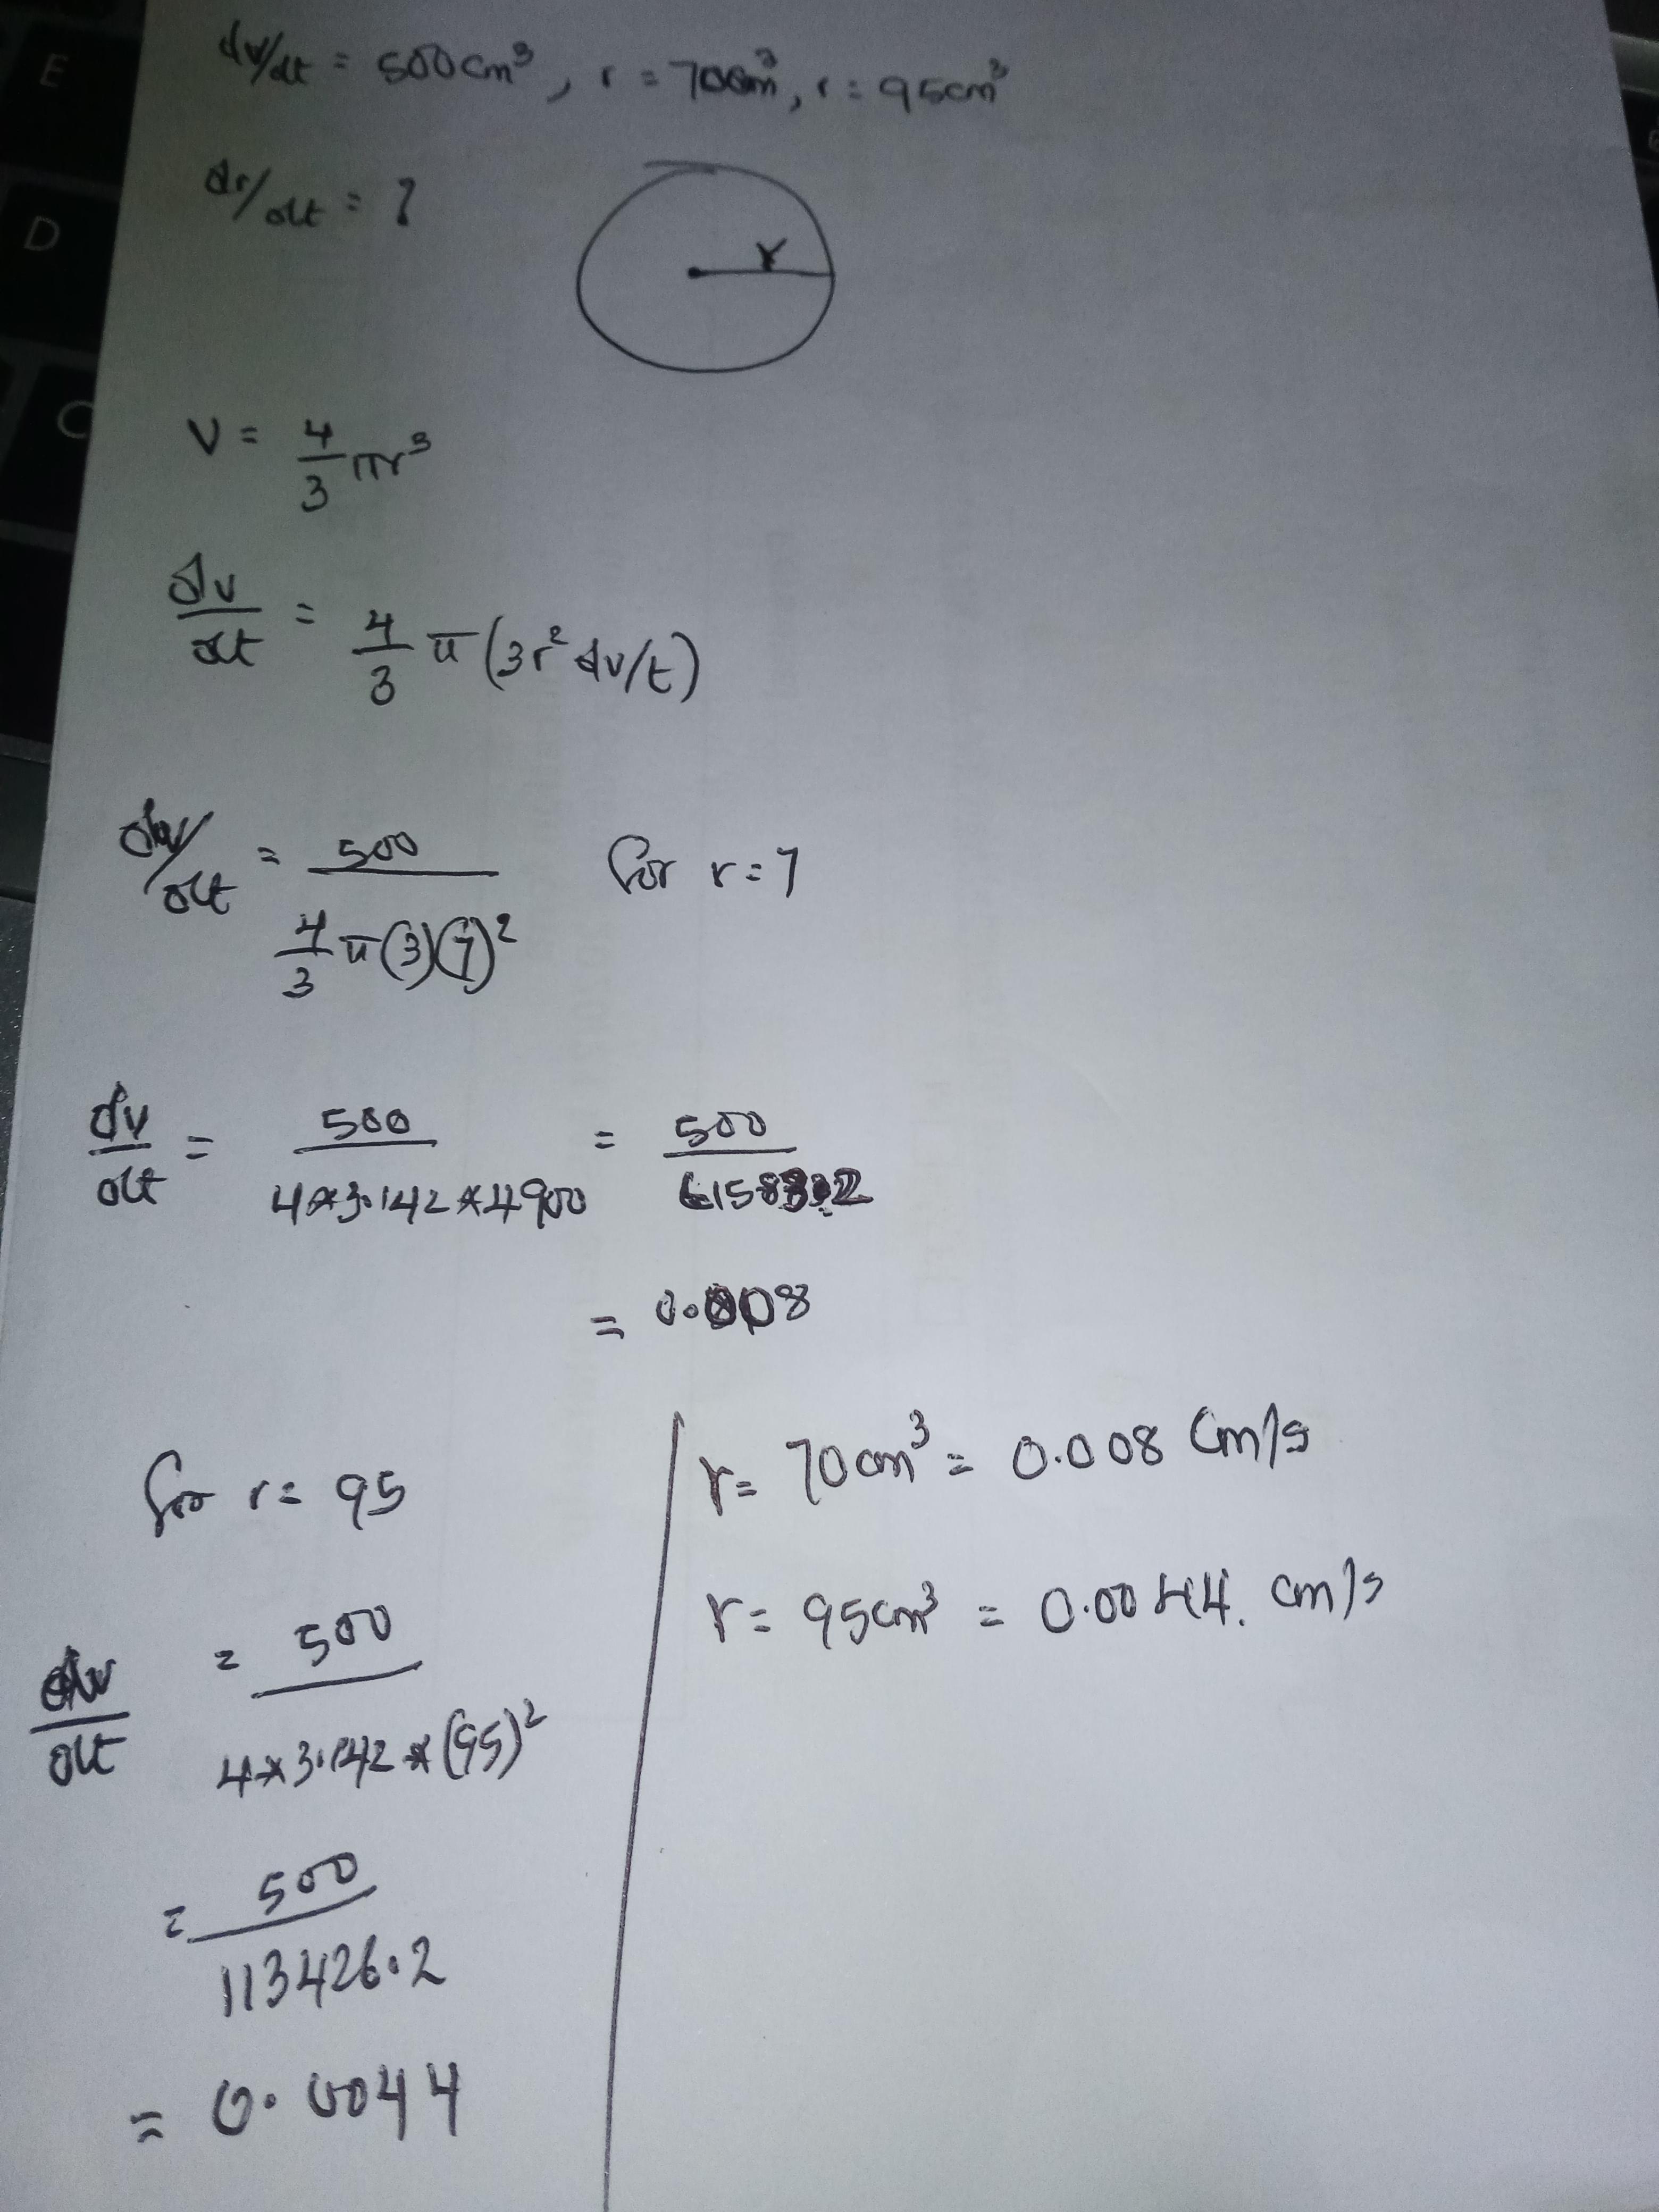 E
D
C
dv/dt = 500cm³, r = 70cm³, r = 95cm³
dr/dt = ?
r
V = 4/3 πr³
dv/dt = 4/3 π (3r² dv/t)
dv/dt = 500 / 4/3 π(3)(7)² for r = 7
dv/dt = 500 / 4*3.142*4900 = 500 /
= 0.008
for r = 95
dv/dt = 500 / 4*3.142*(95)²
= 500 / 113426.2
= 0.0044
r = 70cm³ = 0.008 cm/s
r = 95cm³ = 0.0044. cm/s